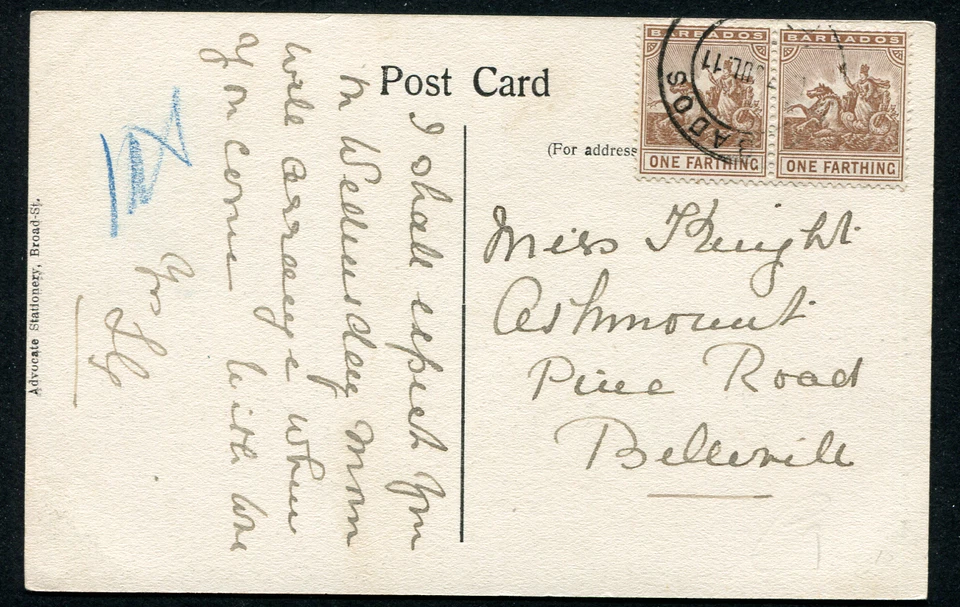 Post Card
(For address
BARBADOS
ONE FARTHING
BARBADOS
ONE FARTHING
BADOS
JUL 11
Miss Knight
Ashmount
Pine Road
Belleville
I shall expect you
on Wednesday morn
will arrange when
you come
Yrs
Advocate Stationery, Broad-St.